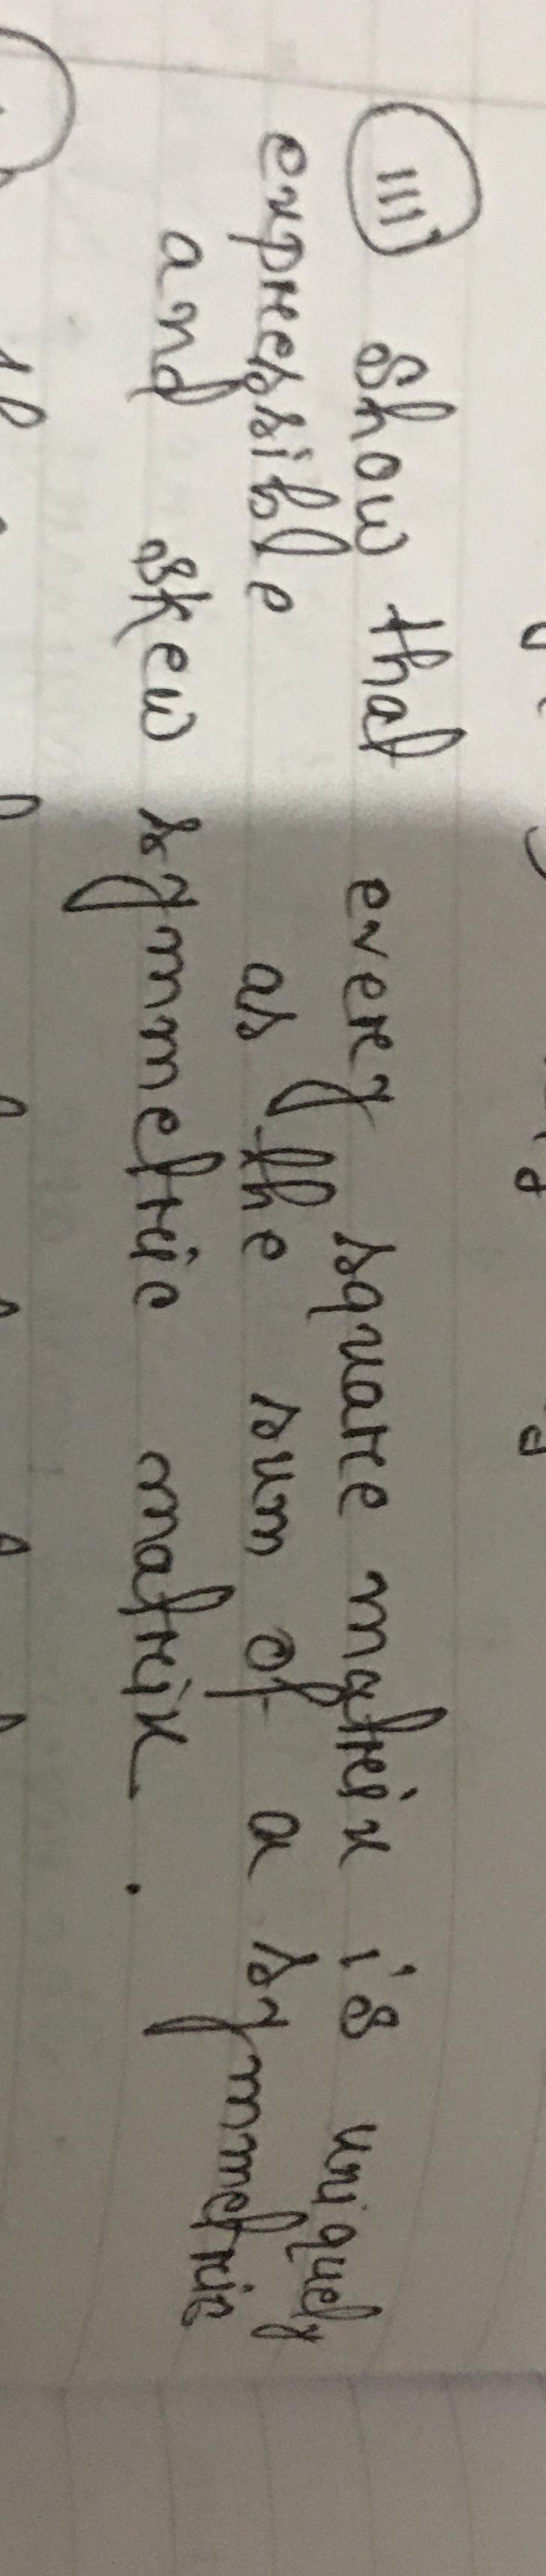 iii Show that every square matrix is uniquely
expressible as the sum of a symmetric
and skew symmetric matrix .